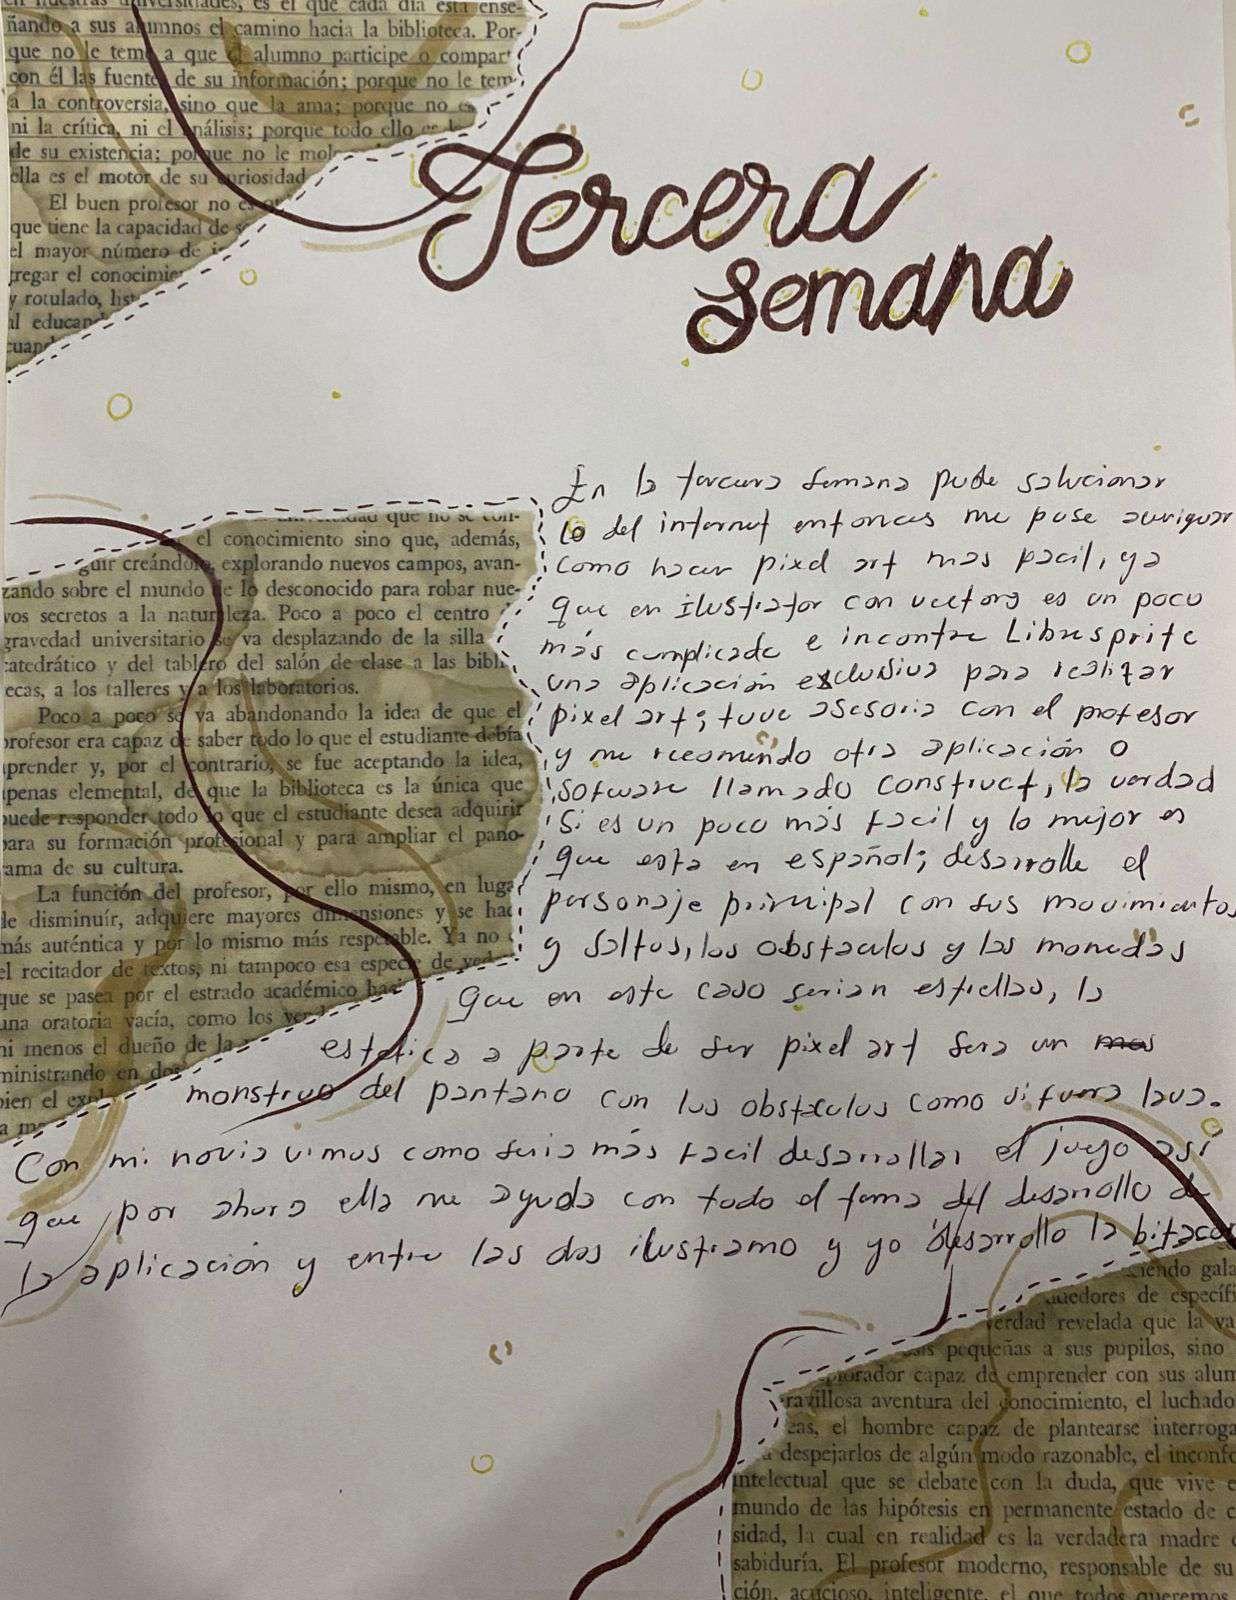 en nuestras universidades, es el que cada día está ense-
ñando a sus alumnos el camino hacia la biblioteca. Por-
que no le teme a que el alumno participe o compart
con él las fuentes de su información; porque no le tem
a la controversia, sino que la ama; porque no es
ni la crítica, ni el análisis; porque todo ello es
de su existencia; porque no le mol
ella es el motor de su curiosidad
El buen profesor no es
que tiene la capacidad de
el mayor número de
gregar el conocimie
y rotulado, list
al educand
cuand
Tercera
semana
En la tercera semana pude solucionar
lo del internet entonces me puse averiguar
como hacer pixel art mas facil, ya
que en ilustrator con vectors es un poco
más cumplicado e incontre Libresprite
una aplicación exclusiva para realizar
pixel art; tuve asesoria con el profesor
y me recomendo otra aplicación o
sofware llamado construct, la verdad
si es un poco más facil y lo mejor es
que esta en español; desarrolle el
personaje principal con sus movimientos
y saltos, los obstaculos y las monedas
que en este caso serian estrellas, la
estetica a parte de ser pixel art sera un mas
monstruo del pantano con los obstaculos como si fuera lava.
Con mi novia vimos como seria más facil desarrollar el juego así
que por ahora ella me ayuda con todo el tema del desarrollo de
la aplicación y entre las dos ilustramo y yo desarrollo la bitacor
idad que no se con-
el conocimiento sino que, además,
guir creándole, explorando nuevos campos, avan-
zando sobre el mundo de lo desconocido para robar nue-
vos secretos a la naturaleza. Poco a poco el centro
gravedad universitario se va desplazando de la silla
catedrático y del tablero del salón de clase a las bibli
ecas, a los talleres y a los laboratorios.
Poco a poco se va abandonando la idea de que el
profesor era capaz de saber todo lo que el estudiante debía
aprender y, por el contrario, se fue aceptando la idea,
apenas elemental, de que la biblioteca es la única que
puede responder todo lo que el estudiante desea adquirir
para su formación profesional y para ampliar el pano-
rama de su cultura.
La función del profesor, por ello mismo, en luga
de disminuír, adquiere mayores dimensiones y se hac
más auténtica y por lo mismo más respetable. Ya no
el recitador de textos, ni tampoco esa especie de
que se pasea por el estrado académico
una oratoria vacía, como los
ni menos el dueño de la
ministrando en
bien el
ciendo gala
de específi
verdad revelada que la va
pequeñas a sus pupilos, sino
explorador capaz de emprender con sus alum
aravillosa aventura del conocimiento, el luchado
eas, el hombre capaz de plantearse interroga
despejarlos de algún modo razonable, el inconfo
intelectual que se debate con la duda, que vive e
mundo de las hipótesis en permanente estado de c
sidad, la cual en realidad es la verdadera madre
sabiduría. El profesor moderno, responsable de su
ción, acucioso, inteligente, el que todos queremos